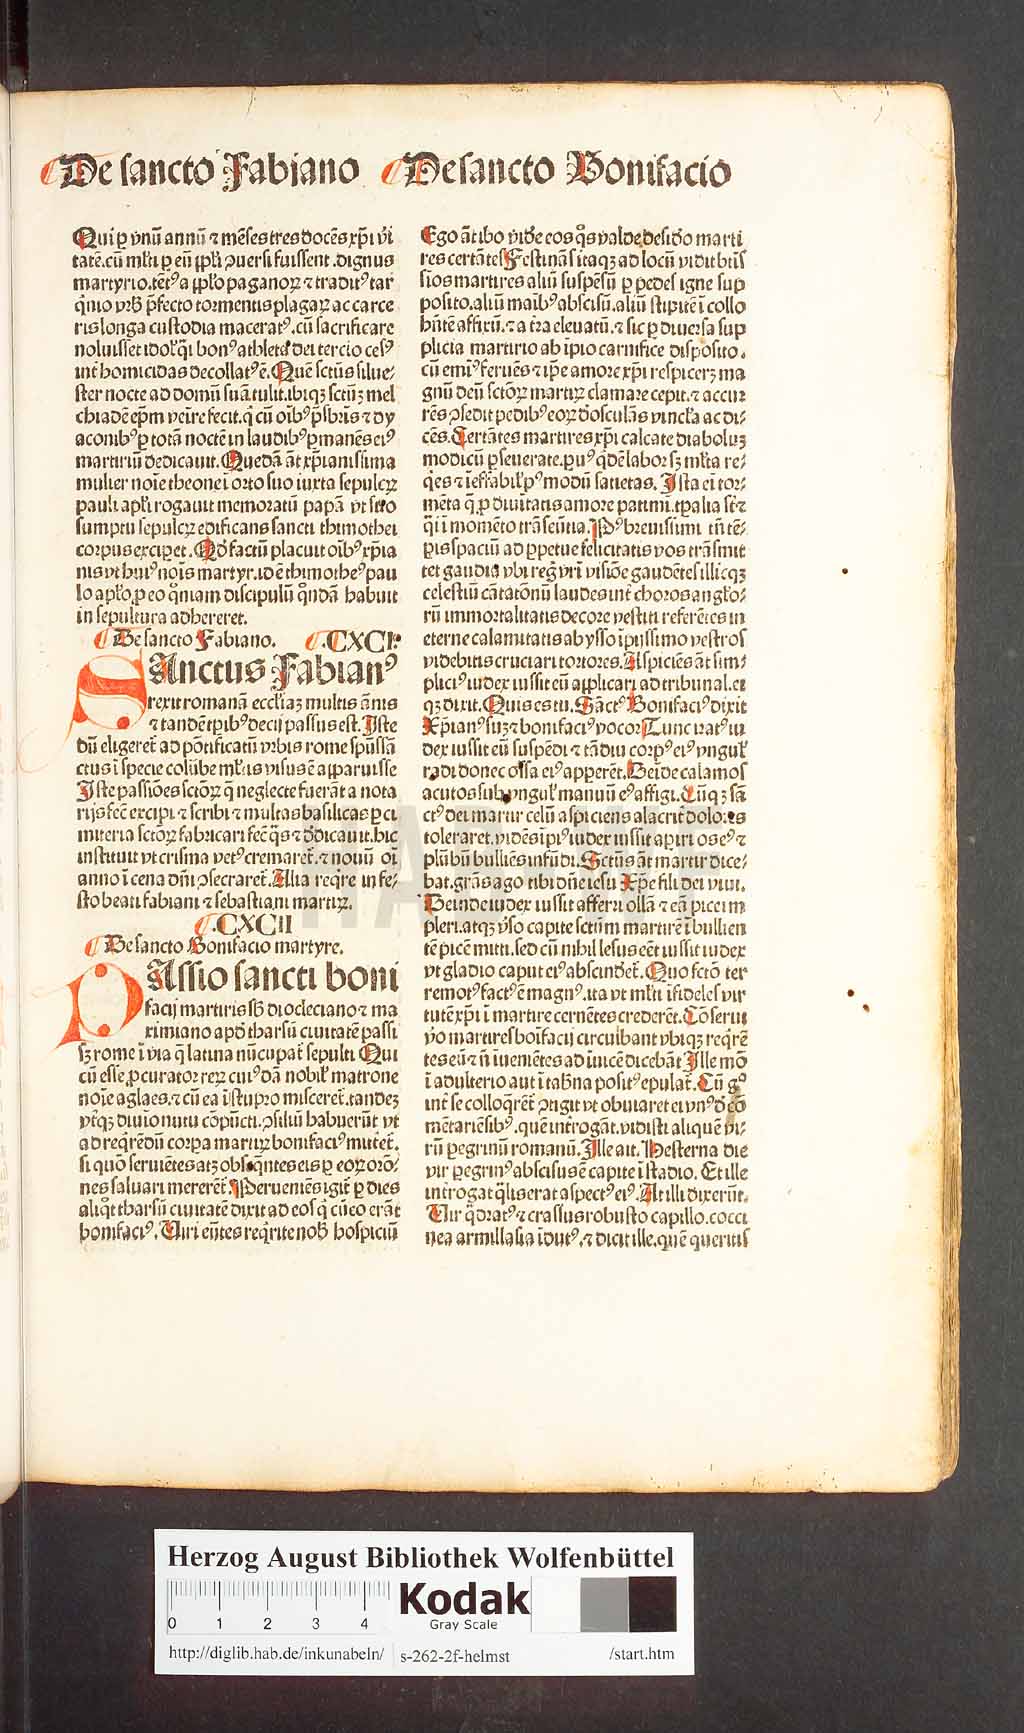 De sancto Fabiano De sancto Bonifacio
Qui ꝑ vnū annū ⁊ mēses tres docēs xp̄i v̄i
tatē. cū ml̄ti ꝑ eū ꝓpl̄i ꝯuersi fuissent. dignus
martyrio. tēt⁹ a pplo paganoꝝ ⁊ tradit⁹ tar
q̄nio vrb̄ p̄fecto tormentis plagaꝝ ac carce
ris longa custodia macerat⁹. cū sacrificare
noluisset idol̄ q̄i bon⁹ athleta dei tercio ces⁹
int̄ homicidas decollat⁹ ē. Quē sctūs silue⸗
ster nocte ad domū suā tulit. ibiqꝫ sctūꝫ mel
chiadē ep̄m ven̄re fecit. q̄ cū oīb⁹ p̄sbr̄is ⁊ dy
aconib⁹ ꝑ totā noctē in laudib⁹ ꝑmanēs ei⁹
martiriū dedicauit. Quedā āt xp̄ianissima
mulier noīe theonei orto suo iuxta sepulcꝝ
pauli apl̄i rogauit memoratū papā vt suo
sumptu sepulcꝝ edificans sancti thimothei
corpus exciperet. Qd̄ factū placuit oīb⁹ xp̄ia
nis vt hui⁹ noīs martyr. id ē thimothe⁹ pau
lo apl̄o. ꝓ eo q̊niam discipulū q̊ndā habuit
in sepultura adhereret.
De sancto Fabiano. CXCI.
SAnctus Fabian⁹
rexit romanā eccl̄iaꝫ multis ānis
⁊ tandē tꝑib⁹ decij passus est. Iste
dū eligeret̄ ad pōtificatū vrbis rome spūssā
ctus ī specie colūbe ml̄tis visus ē apparuisse
Iste passiōes sctōꝝ q̄ neglecte fuerāt a nota
rijs fec̄ excipi ⁊ scribi ⁊ multas basilicas ꝑ ci
miteria sctōꝝ fabricari fec̄ q̄s ⁊ d̄dicauit. hic
instituit vt crisma vet⁹ cremaret̄. ⁊ nouū oī
anno ī cena dn̄i ꝯsecraret̄. Alia req̄re in fe⸗
sto beati fabiani ⁊ sebastiani martirꝝ.
CXCII
De sancto Bonifacio martyre.
PAssio sancti boni
facij martiris sb̄ diocleciano ⁊ ma
ximiano apd̄ tharsū ciuitatē passi
sꝫ rome ī via q̄ latina nūcupat̄ sepulti Qui
cū esset ꝓcurator reꝝ cui⁹dā nobil̄ matrone
noīe aglaes. ⁊ cū ea ī stupro misceret̄. tandeꝫ
vt̄qꝫ diuīo nutu cōpūcti. ꝯsiliū habuerūt vt
ad req̄rēdū corpa martirꝝ bonifaci⁹ mitt̄et̄.
si quō seruiētes atꝫ obseq̄ntes eis ꝑ eoꝝ orō⸗
nes saluari mererēt̄. Perueniēs igit̄ ꝑ dies
aliq̊t tharsū ciuitatē dixit ad eos q̄ cū eo erāt
bonifaci⁹. Uiri eūtes req̄rite nob̄ hospiciū
Ego āt ibo vid̄e eos q̊s valde desid̄o marti
res certātes Festināsitaqꝫ ad locū vidit btīs
sios martires aliū suspēsū ꝑ pedes igne sup
posito. aliū māib⁹ abscisū. aliū stipitē ī collo
hn̄tē affixū. ⁊ a tr̄a eleuatū. ⁊ sic ꝑ diuersa sup
plicia martirio ab īpio carnifice disposito.
cū emi⁹ feruēs ⁊ ip̄e amore xp̄i respicerꝫ ma
gnū deū sctōꝝ martirꝝ clamare cepit. ⁊ accur
rēs ꝯsedit pedib⁹ eoꝝ d̄osculās vincl̄a ac di⸗
cēs. Certātes martires xp̄i calcate diaboluꝫ
modicū ꝑseuerate. paru⁹ q̄dē labor sꝫ ml̄ta re⸗
q̄es ⁊ ieffabil̄ p⁹ modū satietas. Ista eī tor⸗
mēta q̄ ꝓ diuītatis amore patimī. tꝑalia st̄ ⁊
q̄i ī momēto trāseūtia. P⁹ breuissimi tn̄ tē⸗
pis spaciū ad ꝑpetue felicitatis vos trāsmit
tet gaudia vbi reg̊ vrī visiōe gaudētes illicqꝫ
celestiū cātationū laudes int̄ choros angl̄o⸗
rū immortalitatis decore vestiti referētes in
eterne calamitatis abysso īpijssimo vestros
videbitis cruciari tortores. Aspiciēs āt sim⸗
plici⁹ iudex iussit eū applicari ad tribunal. ei
qꝫ dixit. Quis es tu. Sāct⁹ Bonifaci⁹ dixit
Xp̄ian⁹ suꝫ ⁊ bonifaci⁹ vocor Tunc irat⁹ iu
dex iussit eū suspēdi ⁊ tādiu corp⁹ ei⁹ vngul̄
radi donec ossa ei⁹ apperēt. Deīde calamos
acutos sub vngul̄ manuū e⁹ affigi. Cūqꝫ sā
ct⁹ dei martir celū aspiciens alacrit̄ dolores
toleraret. vidēs īpi⁹ iudex iussit apiri os e⁹ ⁊
plūbū bulliēs infūdi. Sctūs āt martir dice⸗
bat. grās ago tibi dn̄e iesu Xp̄e fili dei viui.
Deinde iudex iussit afferri ollā ⁊ eā pice im
pleri. atqꝫ v̄so capite sctūm martirē ī bullien
tē picē mitti. sed cū nihil lesus eēt iussit iudex
vt gladio caput ei⁹ abscindet̄. Quo fctō ter
remot⁹ fact⁹ ē magn⁹. ita vt ml̄ti īfideles vir
tutē xp̄i ī martire cernētes crederēt. Cōserui
v̄o martires boīfacij circuibant vbiqꝫ req̄rē
tes eū ⁊ n̄ iuenīetes ad īuicē dicebāt Ille mō
ī adulterio aut ī tab̄na posit⁹ epulat̄. Cū g̊
int̄ se colloq̄rēt̄ ꝯtigit vt obuiaret ei vn⁹ d̄ cō
mētariēsib⁹. quē int̄rogāt. vidisti aliquē vi⸗
rū ꝑegrinū romanū. Ille ait. Hesterna die
vir ꝑegrin⁹ abscisus ē capite ī stadio. Et ille
int̄rogāt q̄lis erat aspect⁹ ei⁹. At illi dixerūt.
Uir q̄drat⁹ ⁊ crassus robusto capillo. cocci
nea armillasia īdut⁹. ⁊ dicit ille. quē queritis
HAB WF
Herzog August Bibliothek Wolfenbüttel
0 1 2 3 4
Kodak
Gray Scale
http://diglib.hab.de/inkunabeln/ s-262-2f-helmst /start.htm